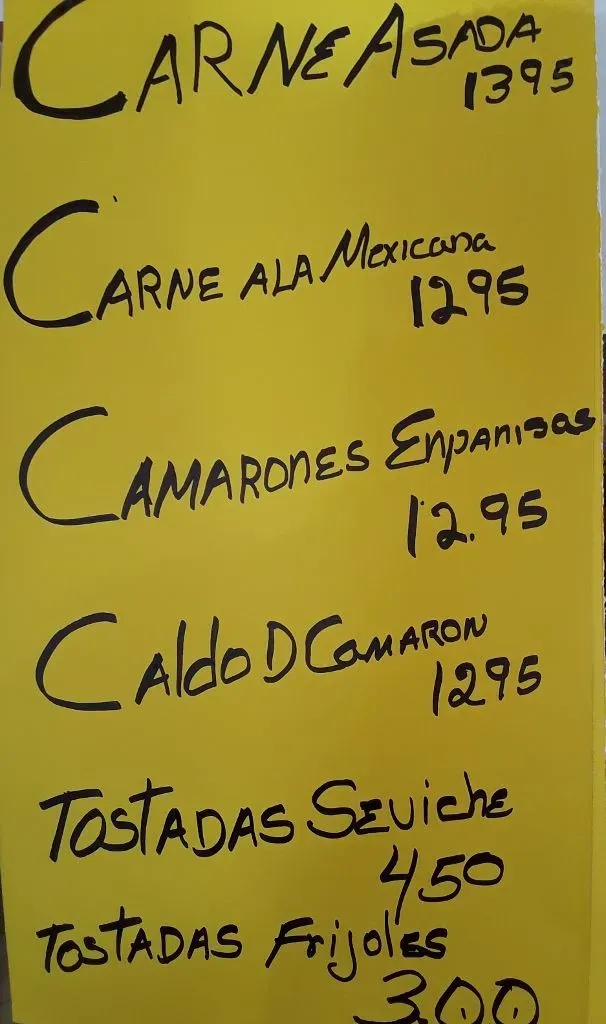 CARNE ASADA
1395
CARNE ALA Mexicana
1295
CAMARONES Enpanisas
12.95
CAldo D CAMARON
1295
TOSTADAS SEVichE
450
TOSTADAS FrijolEs
3.00